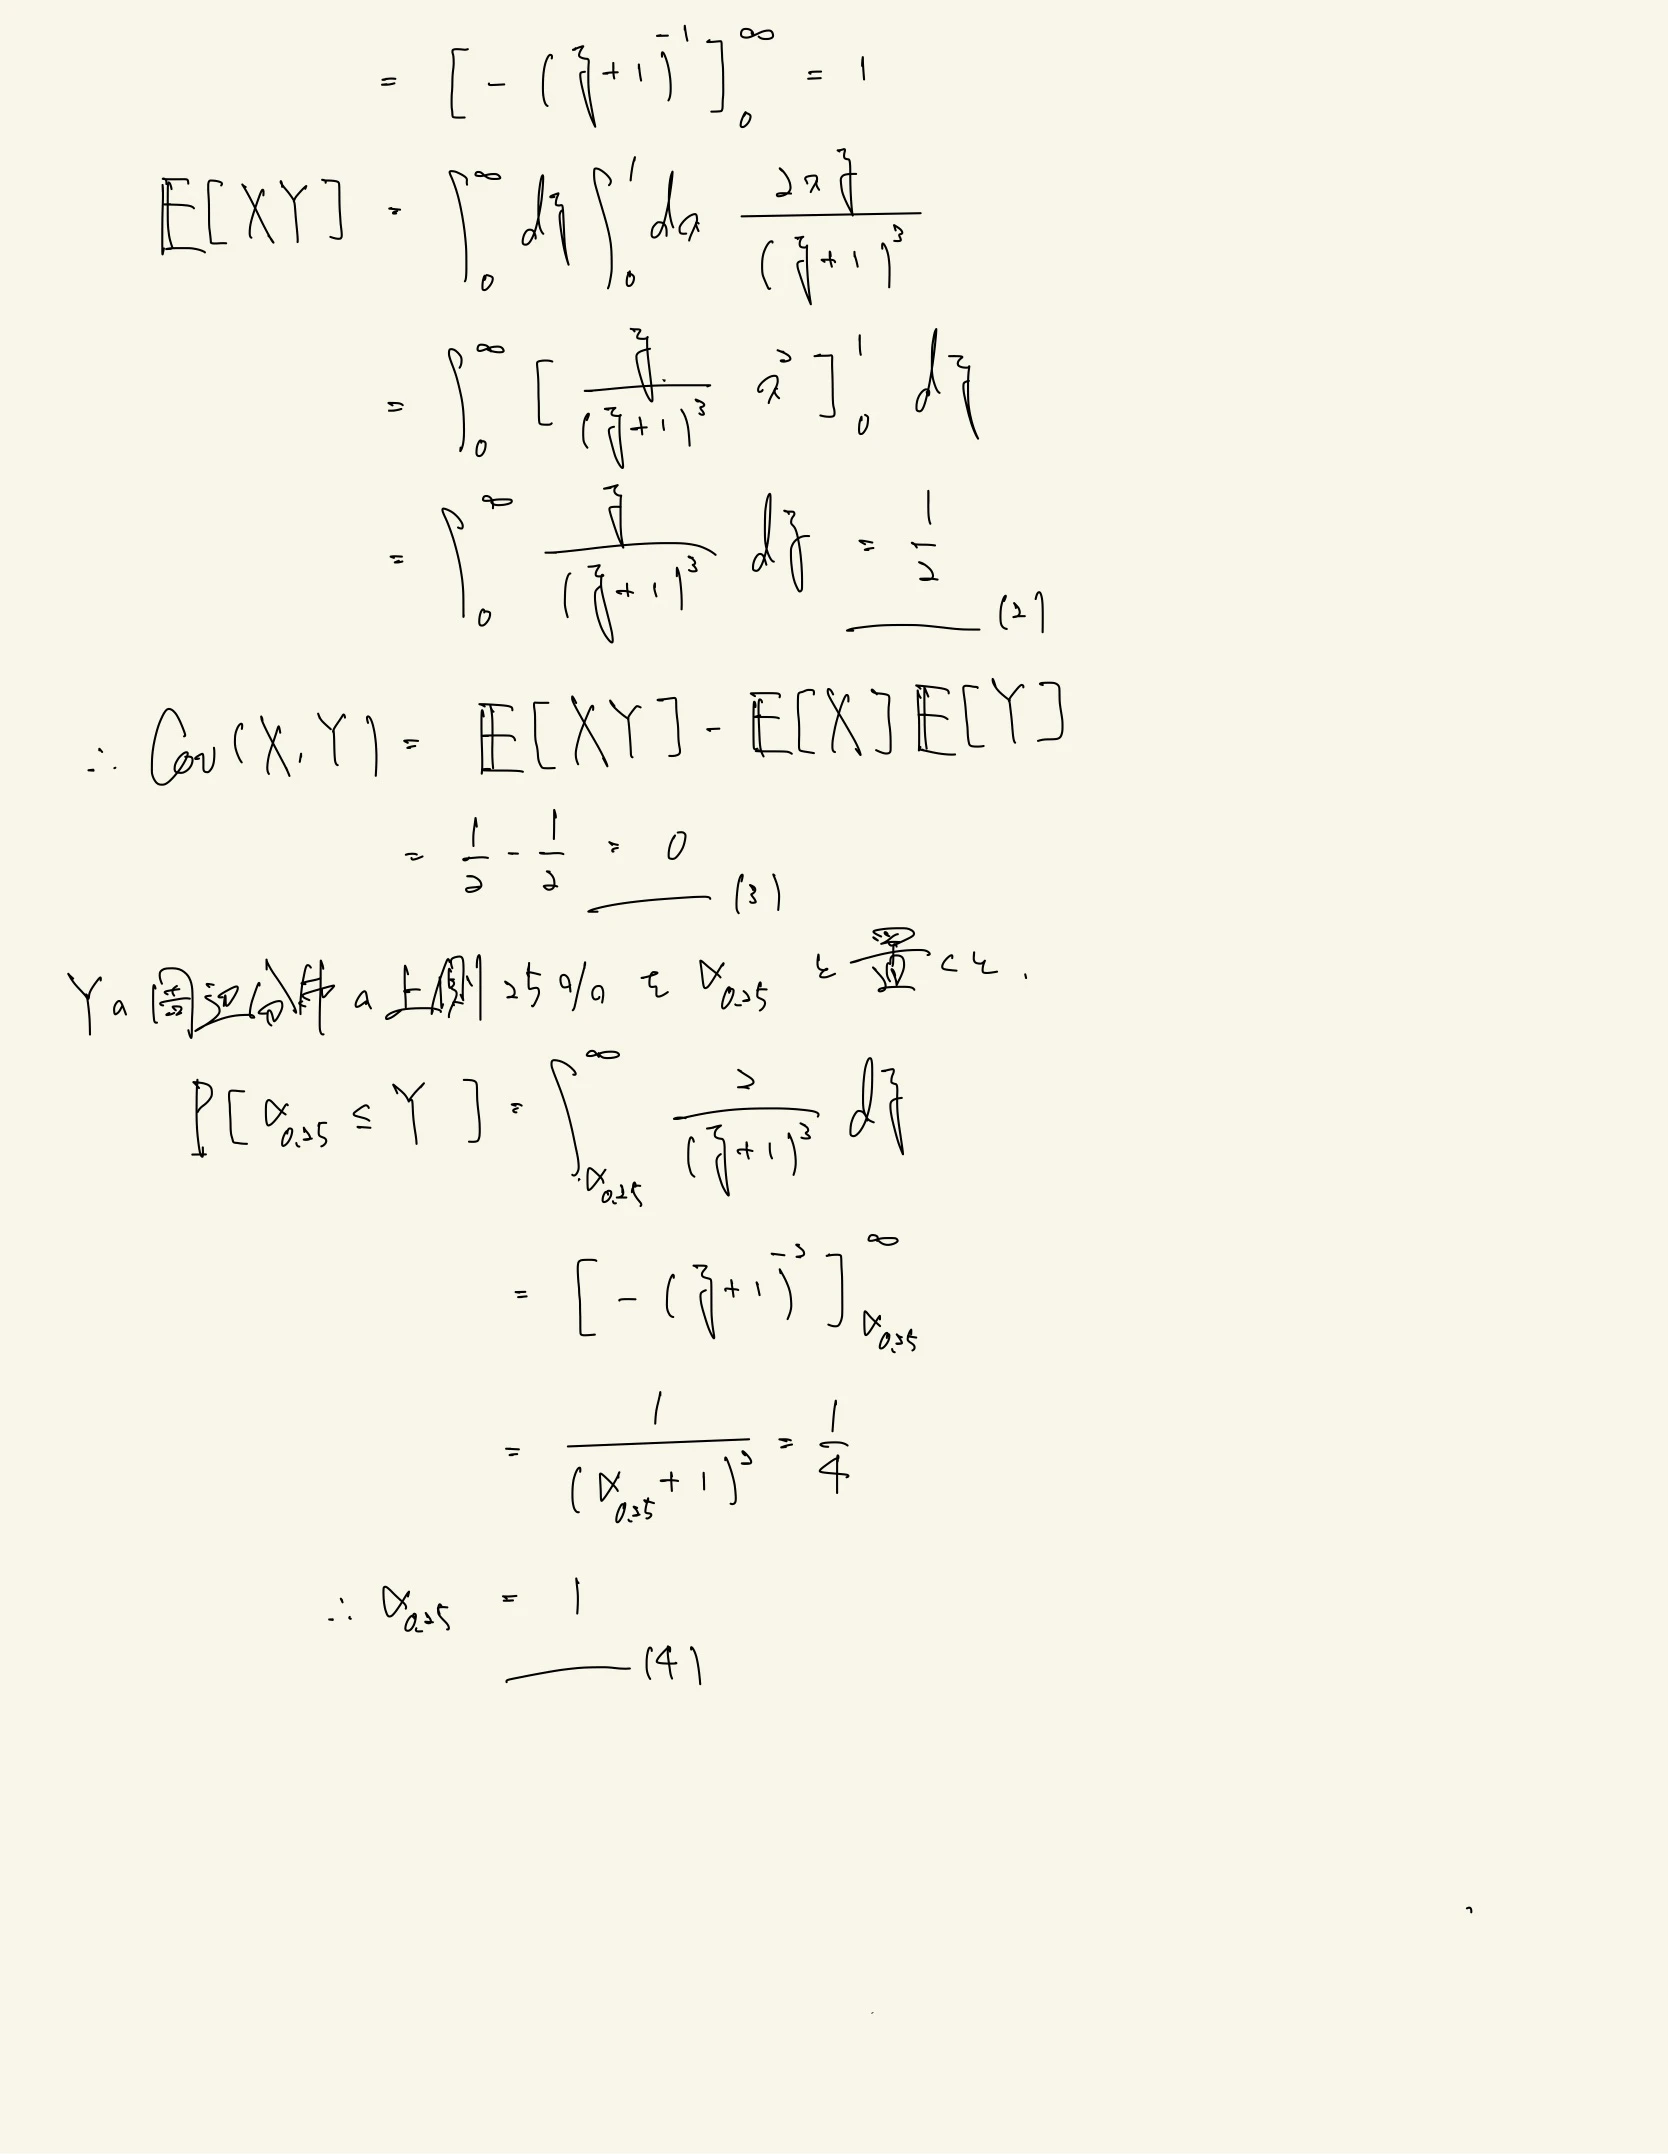 = [ - (y+1)^{-1} ]_0^∞ = 1
E[XY] = ∫_0^∞ dy ∫_0^1 dx 2xy / (y+1)^3
= ∫_0^∞ [ y/(y+1)^3 x^2 ]_0^1 dy
= ∫_0^∞ y/(y+1)^3 dy = 1/2 (2)
∴ Cov(X,Y) = E[XY] - E[X]E[Y]
= 1/2 - 1/2 = 0 (3)
Yの周辺分布の上側25%をα_{0.25}と置くと.
P[α_{0.25} ≤ Y] = ∫_{α_{0.25}}^∞ 2/(y+1)^3 dy
= [ - (y+1)^{-2} ]_{α_{0.25}}^∞
= 1/(α_{0.25}+1)^2 = 1/4
∴ α_{0.25} = 1
(4)